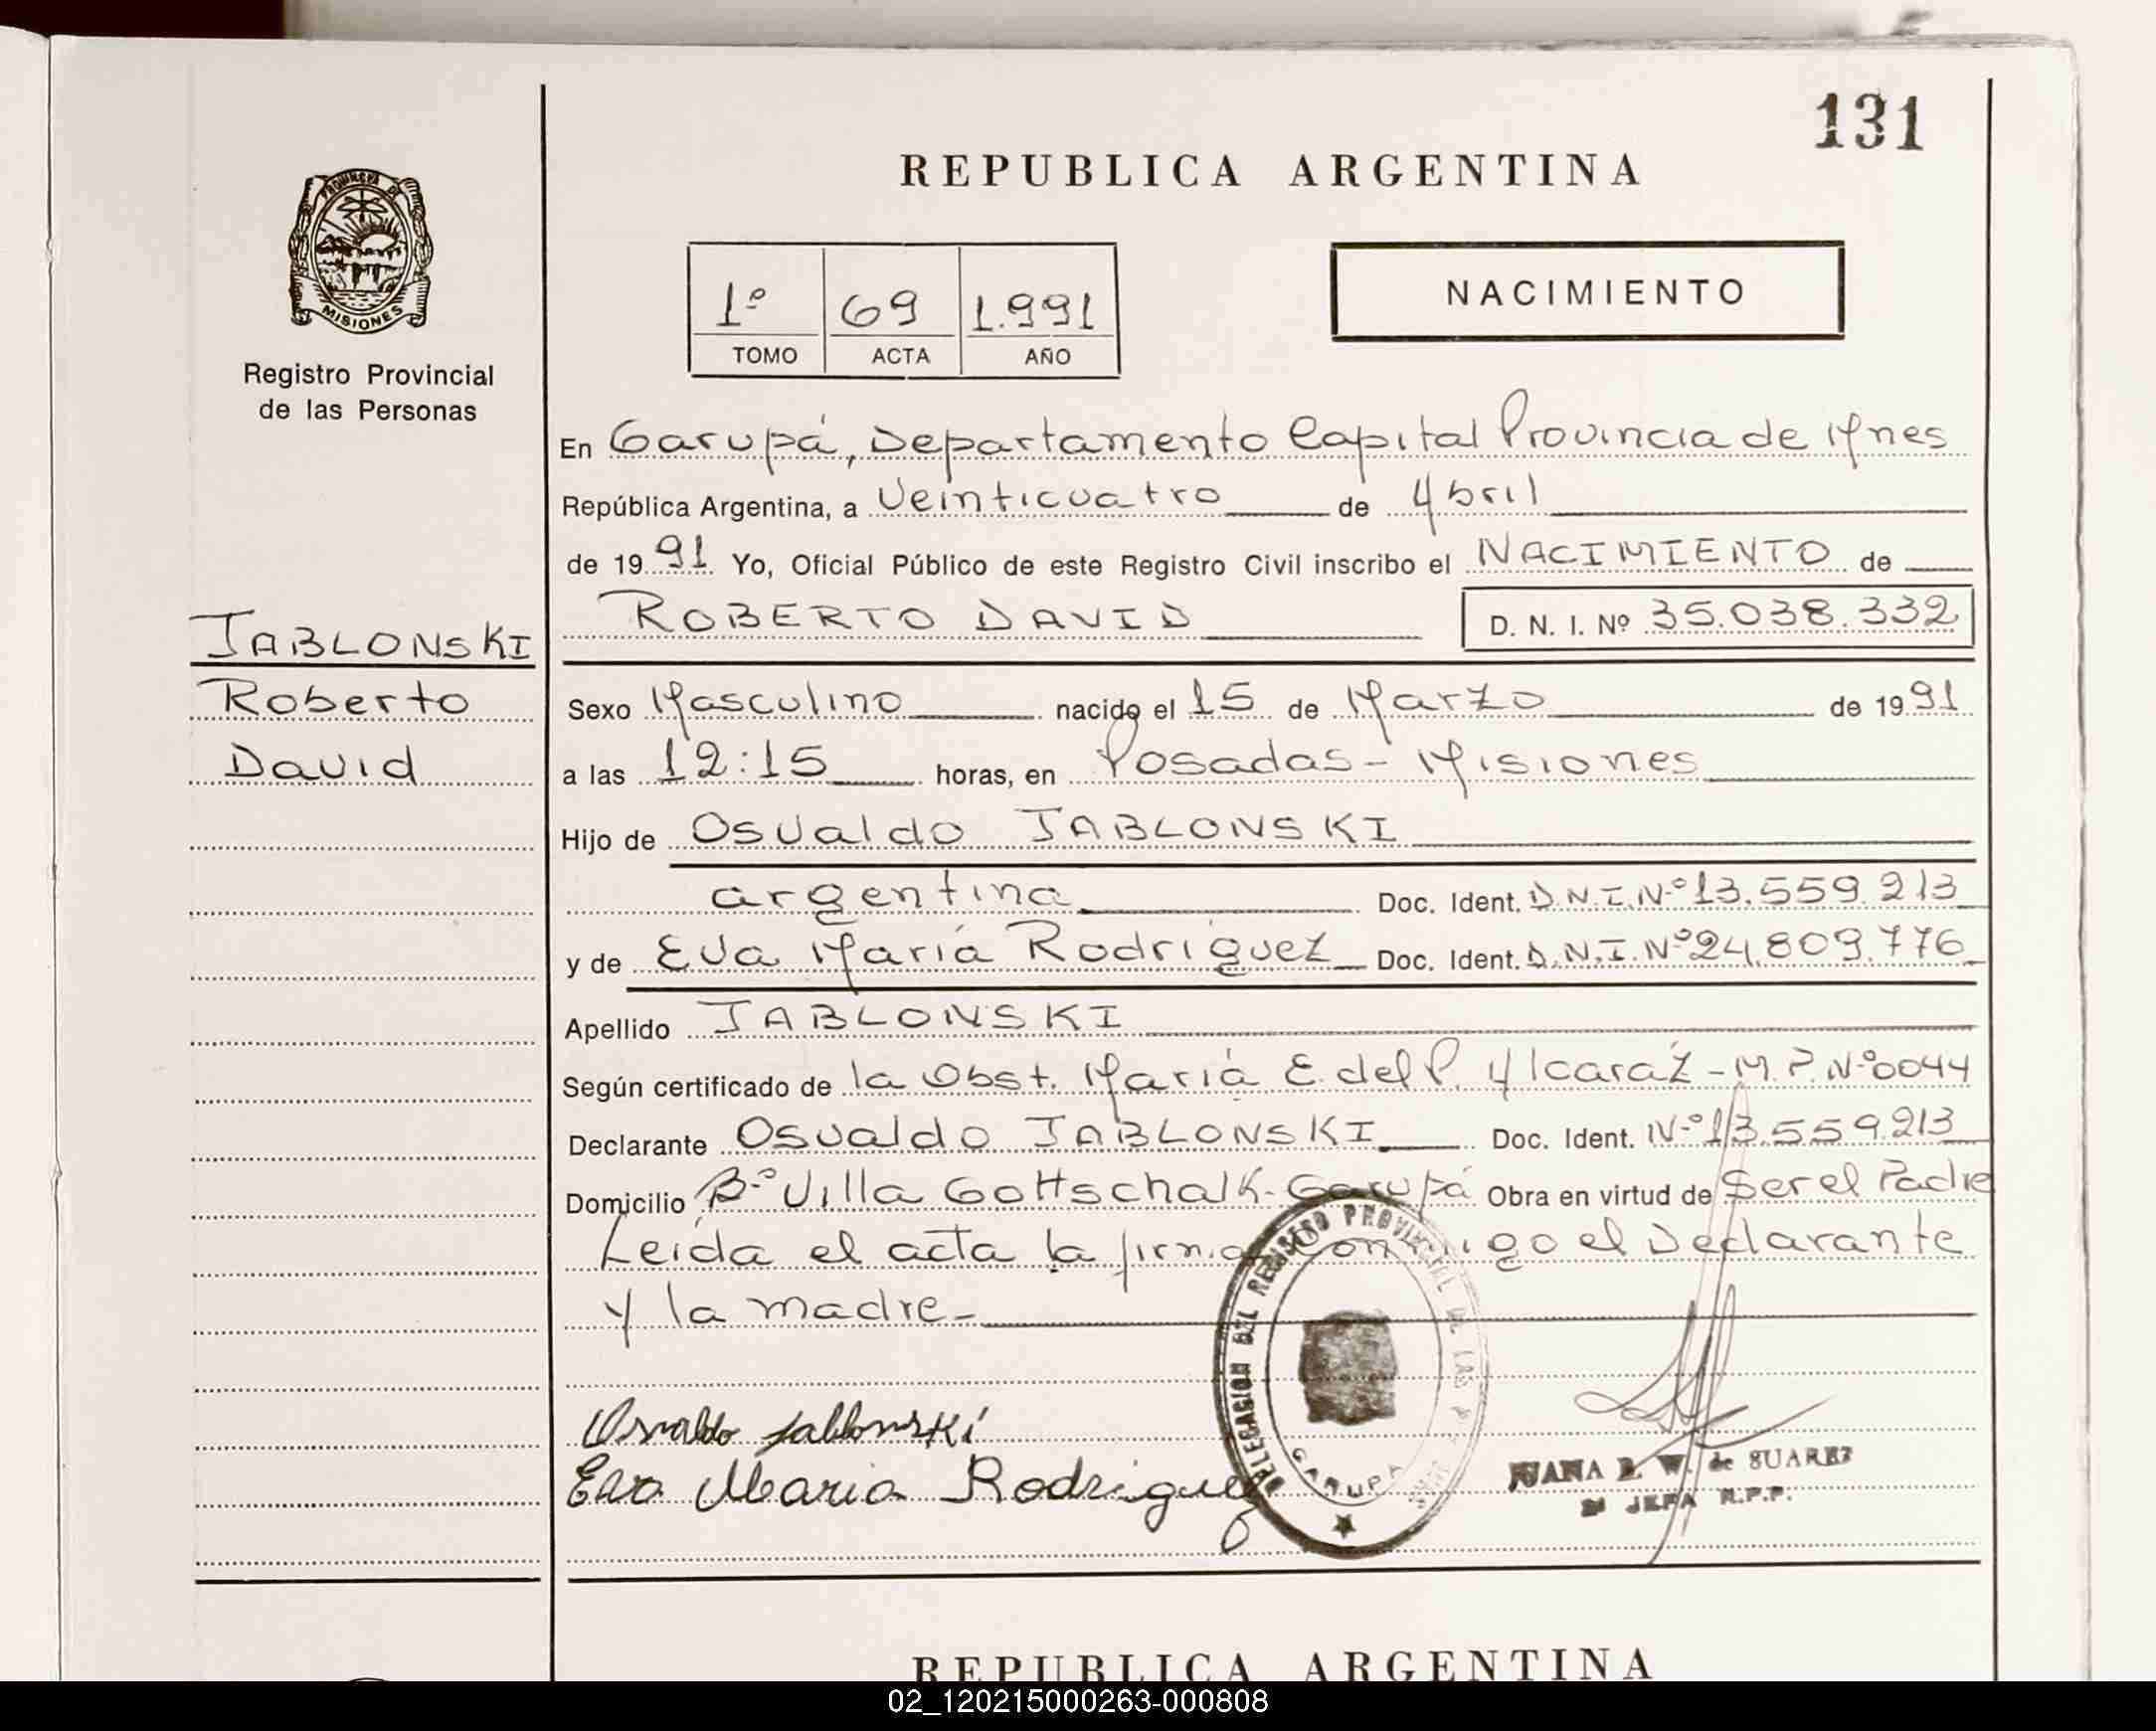 131
REPUBLICA ARGENTINA
PROVINCIA DE
MISIONES
Registro Provincial
de las Personas
1º 69 1.991
TOMO ACTA AÑO
NACIMIENTO
En Garupá, Departamento Capital Provincia de Mnes
República Argentina, a Veinticuatro de Abril
de 1991 Yo, Oficial Público de este Registro Civil inscribo el NACIMIENTO de
ROBERTO DAVID D. N. I. Nº 35.038.332
JABLONSKI
Roberto
David
Sexo Masculino nacido el 15 de Marzo de 1991
a las 12:15 horas, en Posadas - Misiones
Hijo de Osvaldo JABLONSKI
argentina Doc. Ident. D.N.I.Nº 13.559.213
y de Eva María Rodríguez Doc. Ident. D.N.I.Nº 24.809.776
Apellido JABLONSKI
Según certificado de la Obst. María E. del P. Alcaráz - M.P. Nº 0044
Declarante Osvaldo JABLONSKI Doc. Ident. Nº 13.559.213
Domicilio Bº Villa Gottschalk - Garupá Obra en virtud de Ser el Padre
Leída el acta la firma conmigo el Declarante
y la madre -
Osvaldo Jablonski
Eva Maria Rodriguez
DELEGACION DEL REGISTRO PROVINCIAL DE LAS
GARUPA
JUANA E. W. de SUAREZ
JEFA R.P.P.
REPUBLICA ARGENTINA
02_120215000263-000808